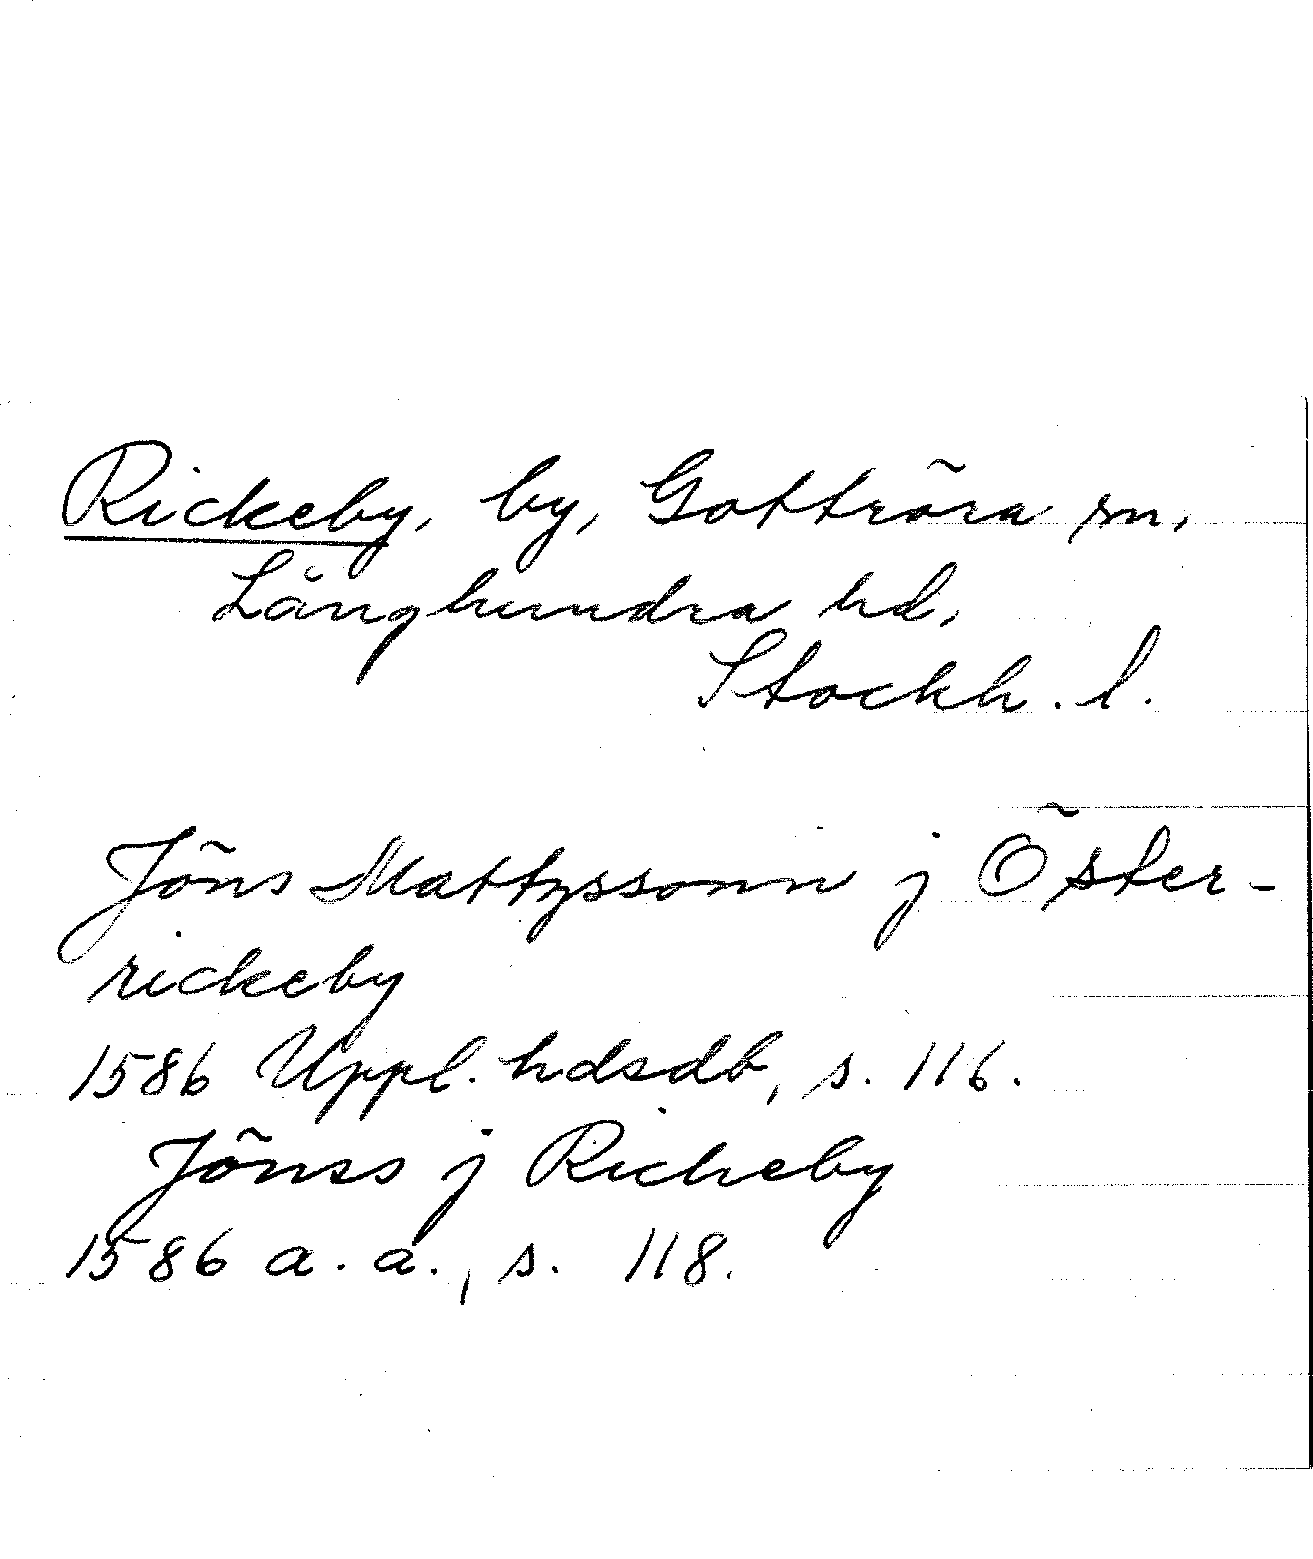 Rickeby, by, Gottröra sn,
Långhundra hd,
Stockh. l.
Jöns Mattzssonn j Öster-
rickeby
1586 Uppl. hdsdb, s. 116.
Jönss j Richeby
1586 a. a., s. 118.